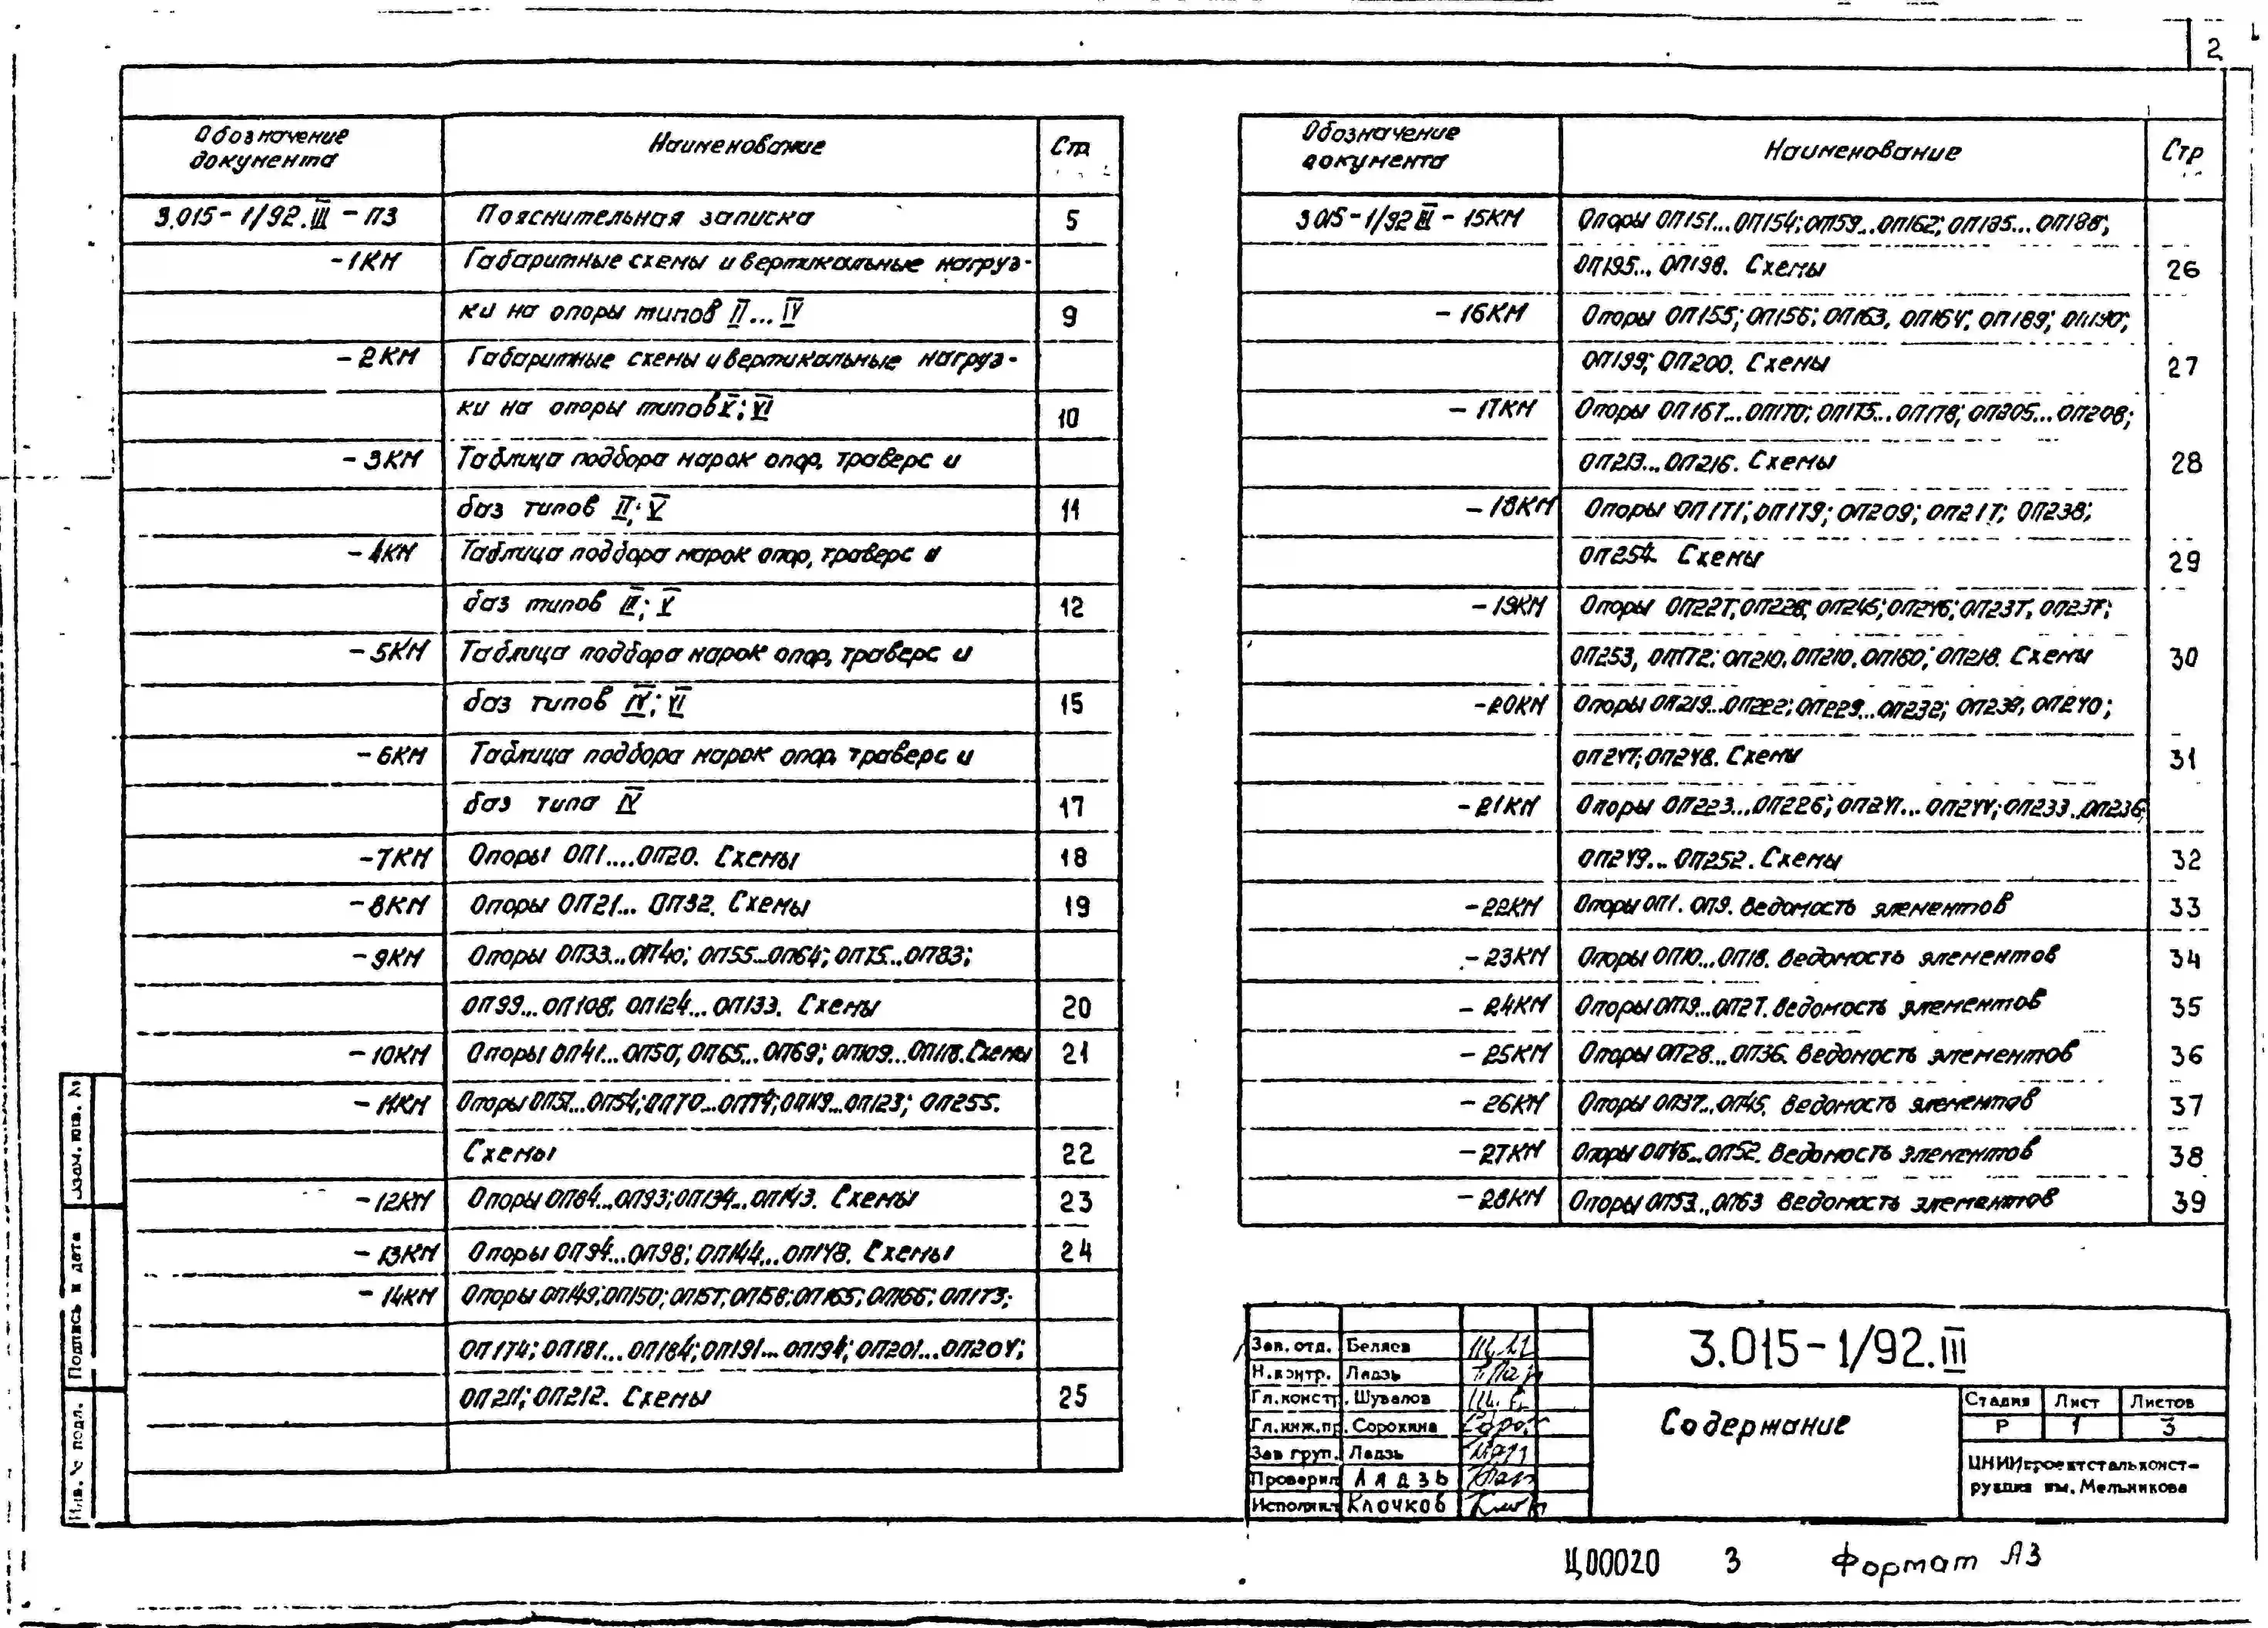 2
Обозначение документа Наименование Стр
3.015-1/92.III-ПЗ Пояснительная записка 5
-1КМ Габаритные схемы и вертикальные нагруз-
ки на опоры типов II...IV 9
-2КМ Габаритные схемы и вертикальные нагруз-
ки на опоры типов V; VI 10
-3КМ Таблица подбора марок опор, траверс и
баз типов II; V 11
-4КМ Таблица подбора марок опор, траверс и
баз типов III; V 12
-5КМ Таблица подбора марок опор, траверс и
баз типов IV; VI 15
-6КМ Таблица подбора марок опор, траверс и
баз типа IV 17
-7КМ Опоры ОП1....ОП20. Схемы 18
-8КМ Опоры ОП21... ОП32. Схемы 19
-9КМ Опоры ОП33...ОП40; ОП55...ОП64; ОП75...ОП83;
ОП99...ОП108; ОП124...ОП133. Схемы 20
-10КМ Опоры ОП41...ОП50; ОП65...ОП69; ОП109...ОП118. Схемы 21
-11КМ Опоры ОП51...ОП54; ОП70...ОП74; ОП119...ОП123; ОП255.
Схемы 22
-12КМ Опоры ОП84...ОП93; ОП134...ОП143. Схемы 23
-13КМ Опоры ОП94...ОП98; ОП144...ОП148. Схемы 24
-14КМ Опоры ОП149; ОП150; ОП157; ОП158; ОП165; ОП166; ОП173;
ОП174; ОП181...ОП184; ОП191...ОП194; ОП201...ОП204;
ОП211; ОП212. Схемы 25
Обозначение документа Наименование Стр
3.015-1/92 III-15КМ Опоры ОП151...ОП154; ОП159...ОП162; ОП185...ОП188;
ОП195... ОП198. Схемы 26
-16КМ Опоры ОП155; ОП156; ОП163, ОП164; ОП189; ОП190;
ОП199; ОП200. Схемы 27
-17КМ Опоры ОП167...ОП170; ОП175...ОП178; ОП205...ОП208;
ОП213...ОП216. Схемы 28
-18КМ Опоры ОП171; ОП179; ОП209; ОП217; ОП238;
ОП254. Схемы 29
-19КМ Опоры ОП227; ОП228; ОП245; ОП246; ОП237, ОП237;
ОП253, ОП172; ОП210, ОП210, ОП180; ОП218. Схемы 30
-20КМ Опоры ОП219...ОП222; ОП229...ОП232; ОП239, ОП240;
ОП247; ОП248. Схемы 31
-21КМ Опоры ОП223...ОП226; ОП241...ОП244; ОП233...ОП236;
ОП249...ОП252. Схемы 32
-22КМ Опоры ОП1. ОП9. Ведомость элементов 33
-23КМ Опоры ОП10...ОП18. Ведомость элементов 34
-24КМ Опоры ОП19...ОП27. Ведомость элементов 35
-25КМ Опоры ОП28...ОП36. Ведомость элементов 36
-26КМ Опоры ОП37...ОП45. Ведомость элементов 37
-27КМ Опоры ОП46...ОП52. Ведомость элементов 38
-28КМ Опоры ОП53...ОП63 Ведомость элементов 39
Взам. инв. №
Подпись и дата
Инв. № подл.
Зав. отд. Беляев
Н.контр. Лядзь
Гл.констр. Шувалов
Гл.инж.пр. Сорокина
Зав груп. Лядзь
Проверил Лядзь
Исполнил Клочков
3.015-1/92.III
Содержание
Стадия Лист Листов
Р 1 3
ЦНИИпроектстальконст-
рукция им. Мельникова
Ц00020 3 Формат А3